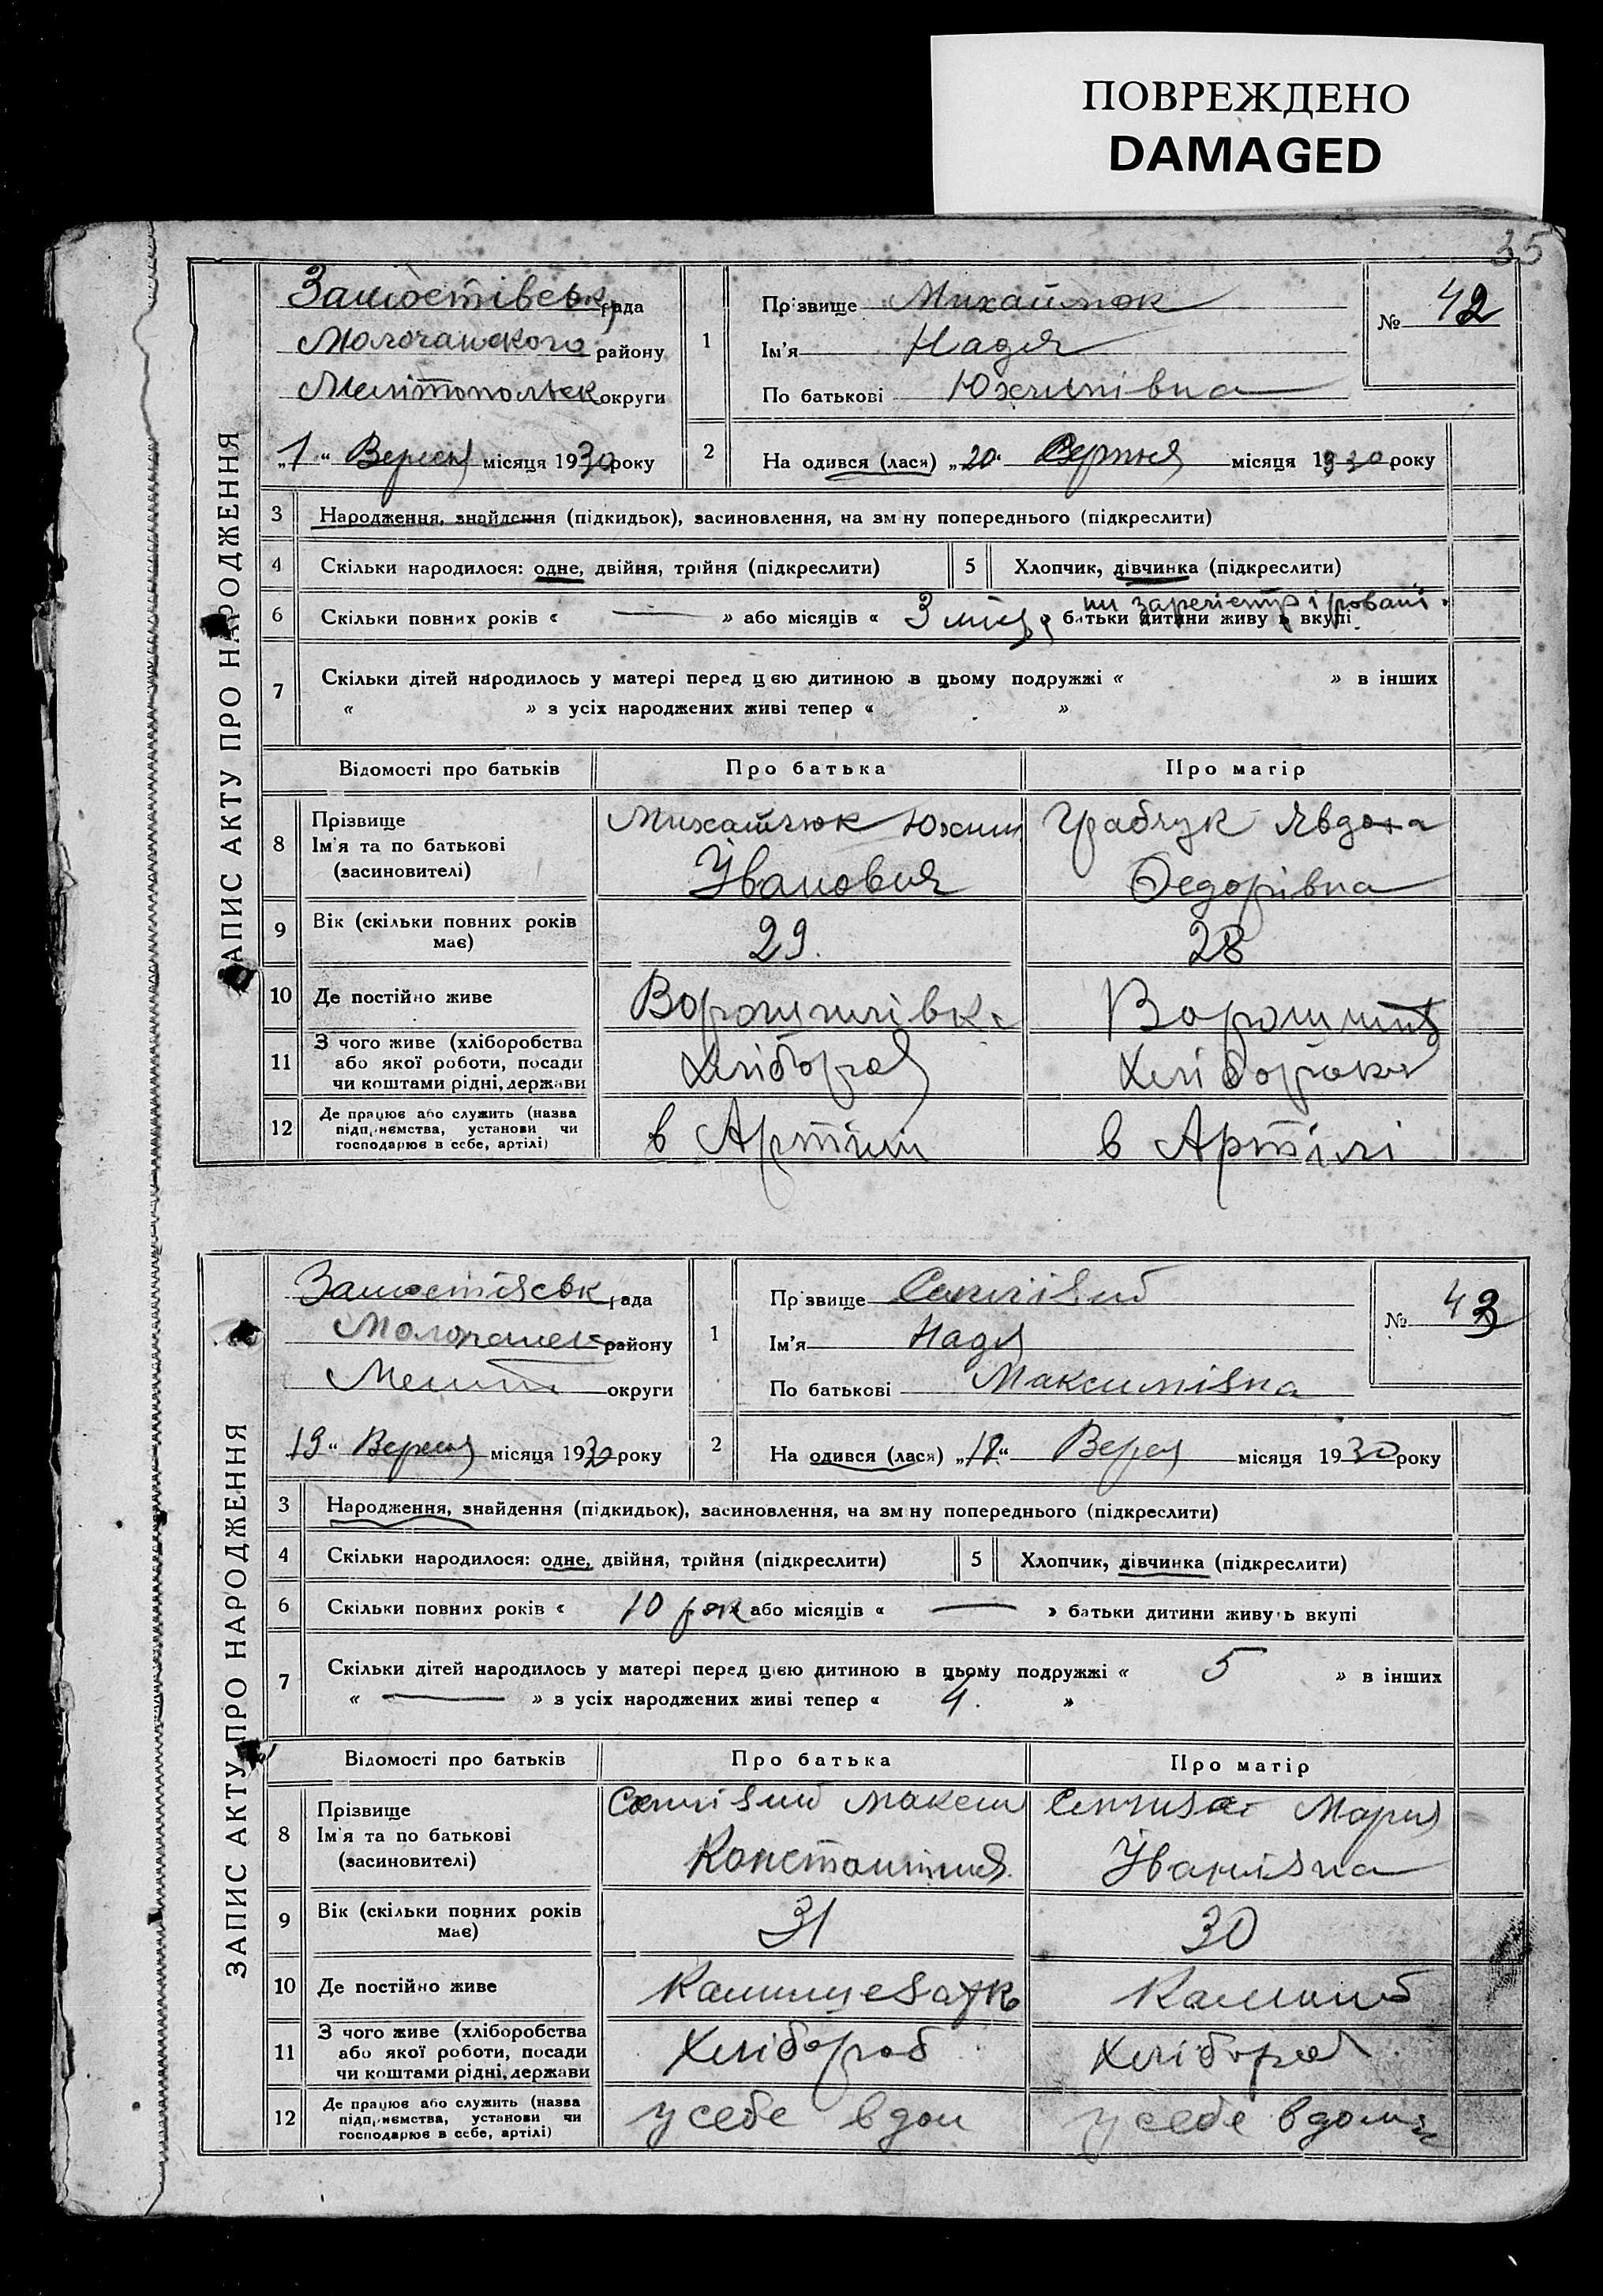 ПОВРЕЖДЕНО
DAMAGED
35
АПИС АКТУ ПРО НАРОДЖЕННЯ
Замостівськ рада
Молочанского району
Мелітопольск округи
„1“ Вересня місяця 1930 року
1
Прізвище Михайлюк
Ім'я Надя
По батькові Юхимівна
№ 42
2
На одився (лася) „20“ місяця 1930 року
3 Народження, знайдення (підкидьок), засиновлення, на зм ну попереднього (підкреслити)
4 Скільки народилося: одне, двійня, трійня (підкреслити)
5 Хлопчик, дівчинка (підкреслити)
ни зарегістріровані.
6 Скільки повних років « — » або місяців « 3 міс » батьки дитини живу ь вкупі
7 Скільки дітей народилось у матері перед цею дитиною в цьому подружжі « » в інших
« » з усіх народжених живі тепер « »
Відомості про батьків Про батька Про матір
8 Прізвище
Ім'я та по батькові
(засиновителі)
Михайлюк Юхим
Івановия
Грабчук Явдоха
Федорівна
9 Вік (скільки повних років має)
29.
28
10 Де постійно живе
Ворошилівка
11 З чого живе (хліборобства
або якої роботи, посади
чи коштами рідні, держави
Хлібороб
12 Де працює або служить (назва
підприємства, установи чи
господарює в себе, артілі)
в Артілі
в Артілі
ЗАПИС АКТУ ПРО НАРОДЖЕННЯ
Замостівськ рада
Молочанск району
Меліт округи
19“ Вересня місяця 1930 року
1
Прізвище
Ім'я Надя
По батькові Максимівна
№ 43
2
На одився (лася) „18“ Верес місяця 1930 року
3 Народження, знайдення (підкидьок), засиновлення, на зм ну попереднього (підкреслити)
4 Скільки народилося: одне, двійня, трійня (підкреслити)
5 Хлопчик, дівчинка (підкреслити)
6 Скільки повних років « 10 рок або місяців « — » батьки дитини живу ь вкупі
7 Скільки дітей народилось у матері перед цією дитиною в цьому подружжі « 5 » в інших
« — » з усіх народжених живі тепер « 4. »
Відомості про батьків Про батька Про матір
8 Прізвище
Ім'я та по батькові
(засиновителі)
Максим
Константинов
Мария
Іванівна
9 Вік (скільки повних років має)
31
30
10 Де постійно живе
11 З чого живе (хліборобства
або якої роботи, посади
чи коштами рідні, держави
Хлібороб
Хлібороб
12 Де працює або служить (назва
підприємства, установи чи
господарює в себе, артілі)
у себе вдом
у себе вдома